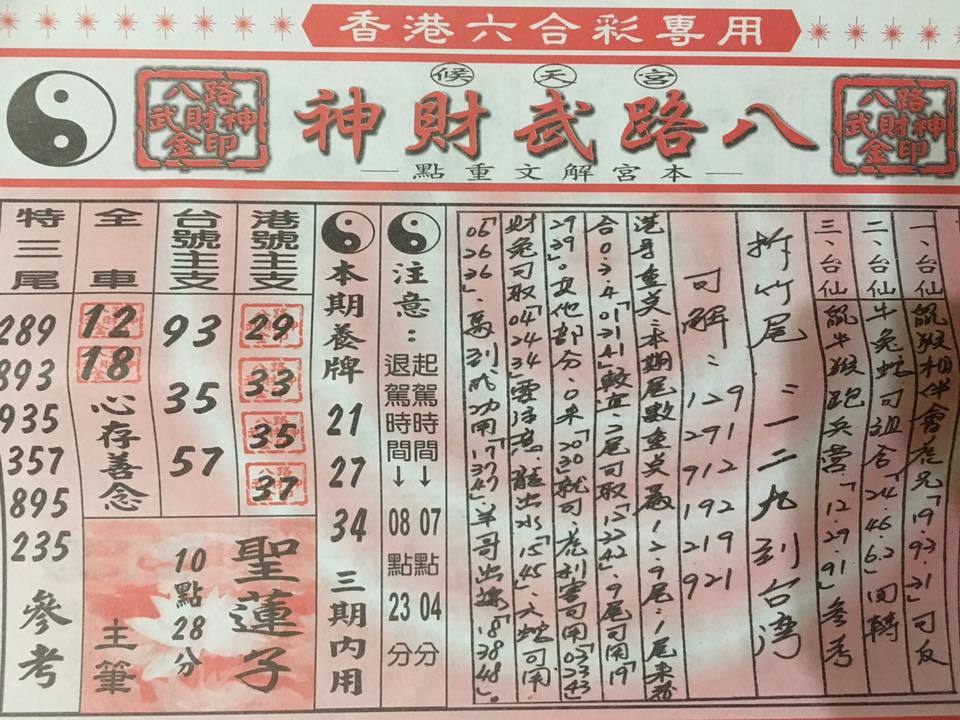 香港六合彩專用
宮天候
八路武財神
八路
武財神
金印
八路
武財神
金印
—本宮解文重點—
一、台仙 鼠猴相伴會虎兄「19.92.21」可反
二、台仙 牛兔蛇可組合「24.46.62」回轉
三、台仙 鼠牛猴跑兵營「12.29.91」參考
拆竹尾：一二九到台灣
可解：129 291 912 192 219 921
港號重點：本期尾數重點為1.2.9尾：1尾來
合0.2.4「01.21.41」較宜：2尾可取「12.22.42」.9尾可用「19
29.39」。其他部分.0來「20.30」就可.虎利害可用「03.23.43
財兔可取「04.24.34」雲浮 龍出水「15.45」.入蛇可用
06.26.36」.馬到成功用「17.37.47」.羊哥出「18.38.48」。
注意：
起駕時間→07點04分
退駕時間→08點23分
本期養牌 21 27 34 三期內用
港號主支
29
33
35
37
台號主支
93
35
57
全車
12
18
心存善念
聖蓮子
10點28分
主筆
特三尾
289
893
935
357
895
235
參考